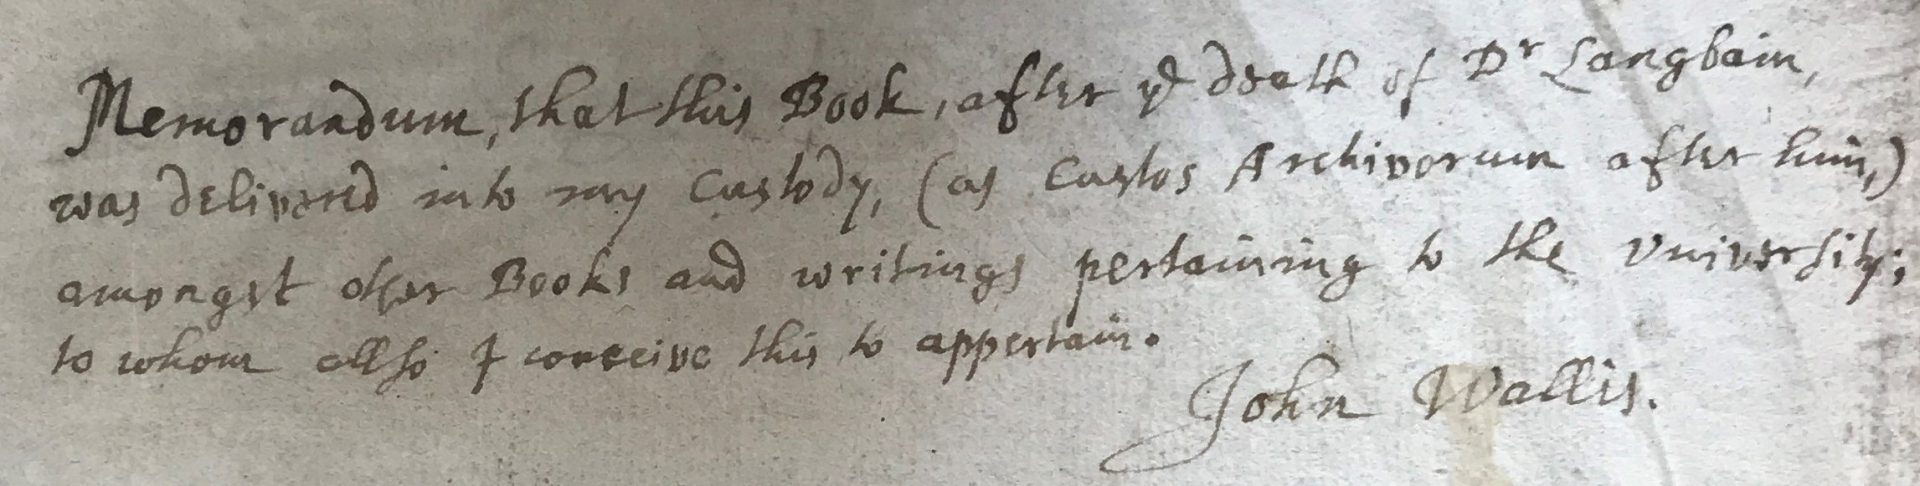 Memorandum, that this Book, after ye death of Dr Langbain,
was delivered into my Custody, (as Custos Archivorum after him,)
amongst other Books and writings pertaining to the University;
to whom allso I conceive this to appertain.
John Wallis.